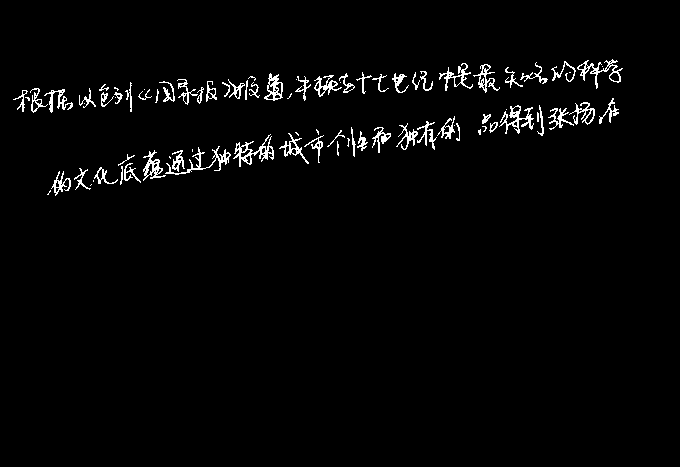 根据以色列《国家报》报道,牛顿在十七世纪中是最知名的科学
的文化底蕴通过独特的城市个性和独有的 品得到张扬,在